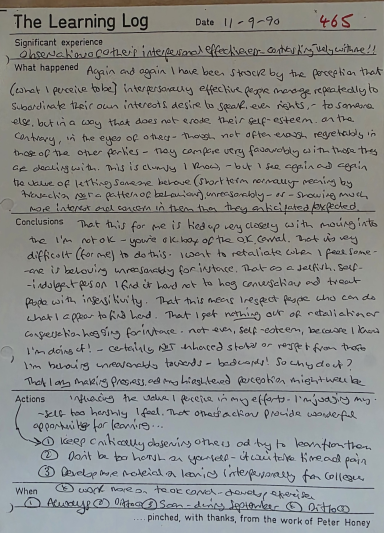 The Learning Log Date 11-9-90 465
Significant experience
Observation of others interpersonal effectiveness contrastingly with me!!
What happened Again and again I have been struck by the perception that
(what I perceive to be) interpersonally effective people manage repeatedly to
subordinate their own interests, desire to speak, even rights, - to someone
else, but in a way that does not erode their self-esteem. On the
contrary, in the eyes of others - though not often enough regrettably in
those of the other parties - they compare very favourably with those they
are dealing with. This is clumsy I know, - but I see again and again
the value of letting someone behave (short term normally meaning by
transaction not a pattern of behaviour) unreasonably - or - showing much
more interest and concern in them than they anticipated/expected.
Conclusions That this for me is tied up very closely with moving into
the I'm not ok - you're ok bay of the OK corral. That it's very
difficult (for me) to do this. I want to retaliate when I feel some-
-one is behaving unreasonably for instance. That as a selfish, self-
-indulgent person I find it hard not to hog conversations and treat
people with insensitivity. That this means I respect people who can do
what I appear to find hard. That I get nothing out of retaliation or
conversation hogging for instance - not even, self-esteem, because I know
I'm doing it! - certainly not enhanced status or respect from those
I'm behaving unreasonably towards - backwards! So why do it?
That I am making progress and my heightened perception might well be
Actions influencing the value I perceive in my efforts - I'm judging my-
-self too harshly I feel. That others actions provide wonderful
opportunities for learning...
① Keep critically observing others and try to learn from them
② Don't be too harsh on yourself - it will take time and pain
③ Develope material on learning interpersonally for colleges
When ④ work more on the ok corral - develop exercises
① Always ② Ditto ③ Soon - during September ④ Ditto
....pinched, with thanks, from the work of Peter Honey